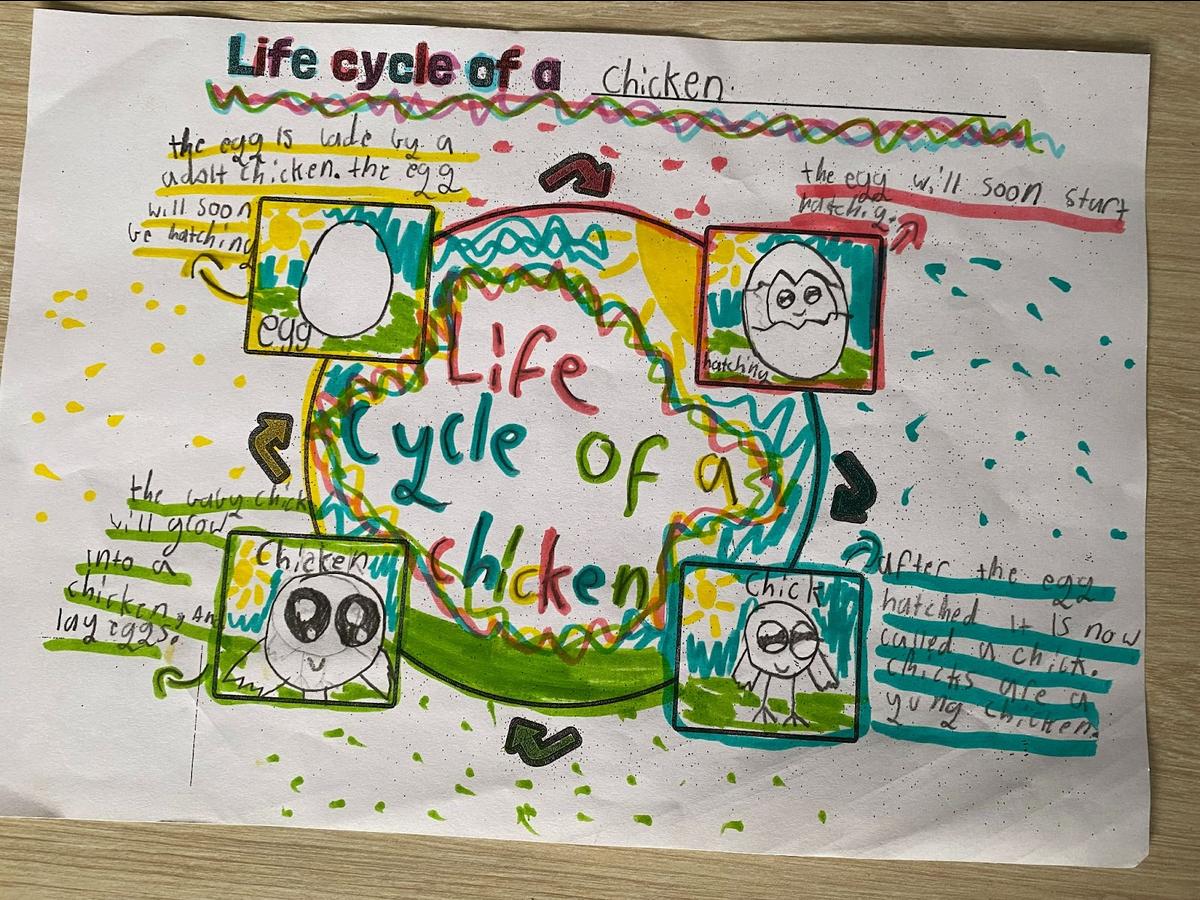 Life cycle of a chicken.
the egg is lade by a
adolt chicken. the egg
will soon
be hatching
egg
the egg will soon start
hatchig.
hatching
Life
Cycle of a
chicken
the baby chick
will grow
into a
chicken, an
lay eggs.
Chicken
Chick
after the egg
hatched it is now
called a chick.
chicks are a
yung chicken.